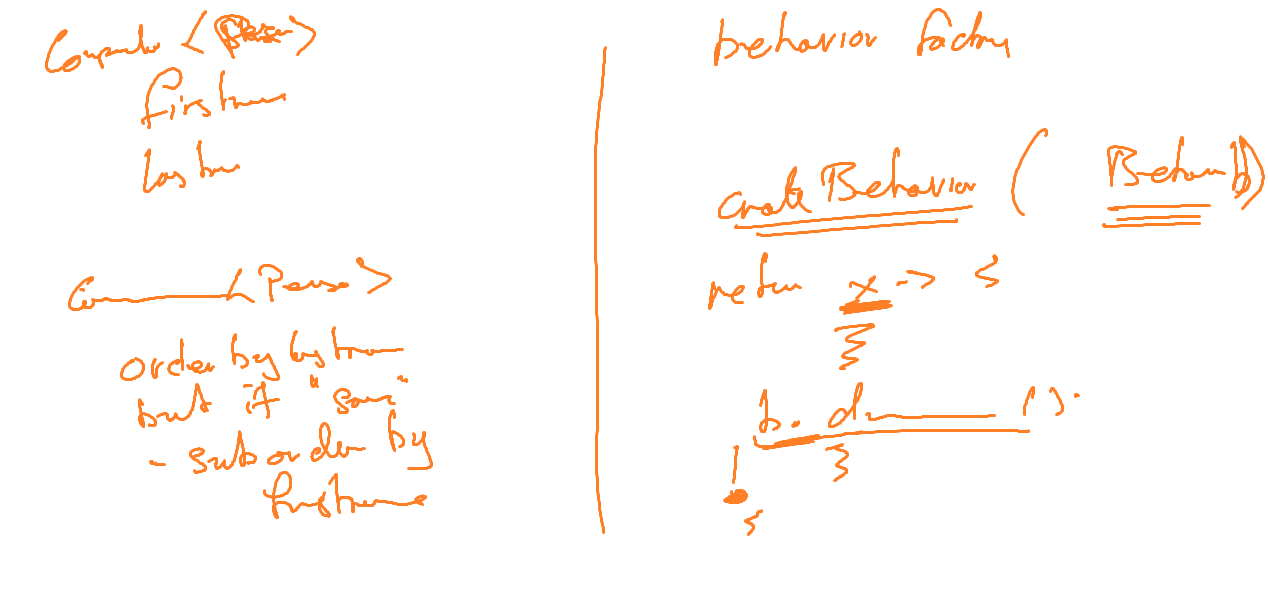 Comparator <Person>
firstname
lastname
C <Person>
order by lastname
but if "same"
- suborder by
firstname
behavior factory
create Behavior ( Behavior b)
return x -> {
b. d ( );
}